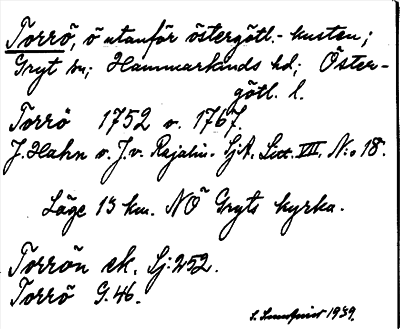 Torrö, ö utanför östergötl.-kusten;
Gryt sn; Hammarkinds hd; Öster-
götl. l.
Torrö 1752 o. 1767.
J. Hahn o. J. v. Rajalin. SjA. Litt. VIII. N:o 18.
Läge 13 km. NÖ Gryts kyrka.
Torrön ek. Sj: 252.
Torrö G. 46.
1939.